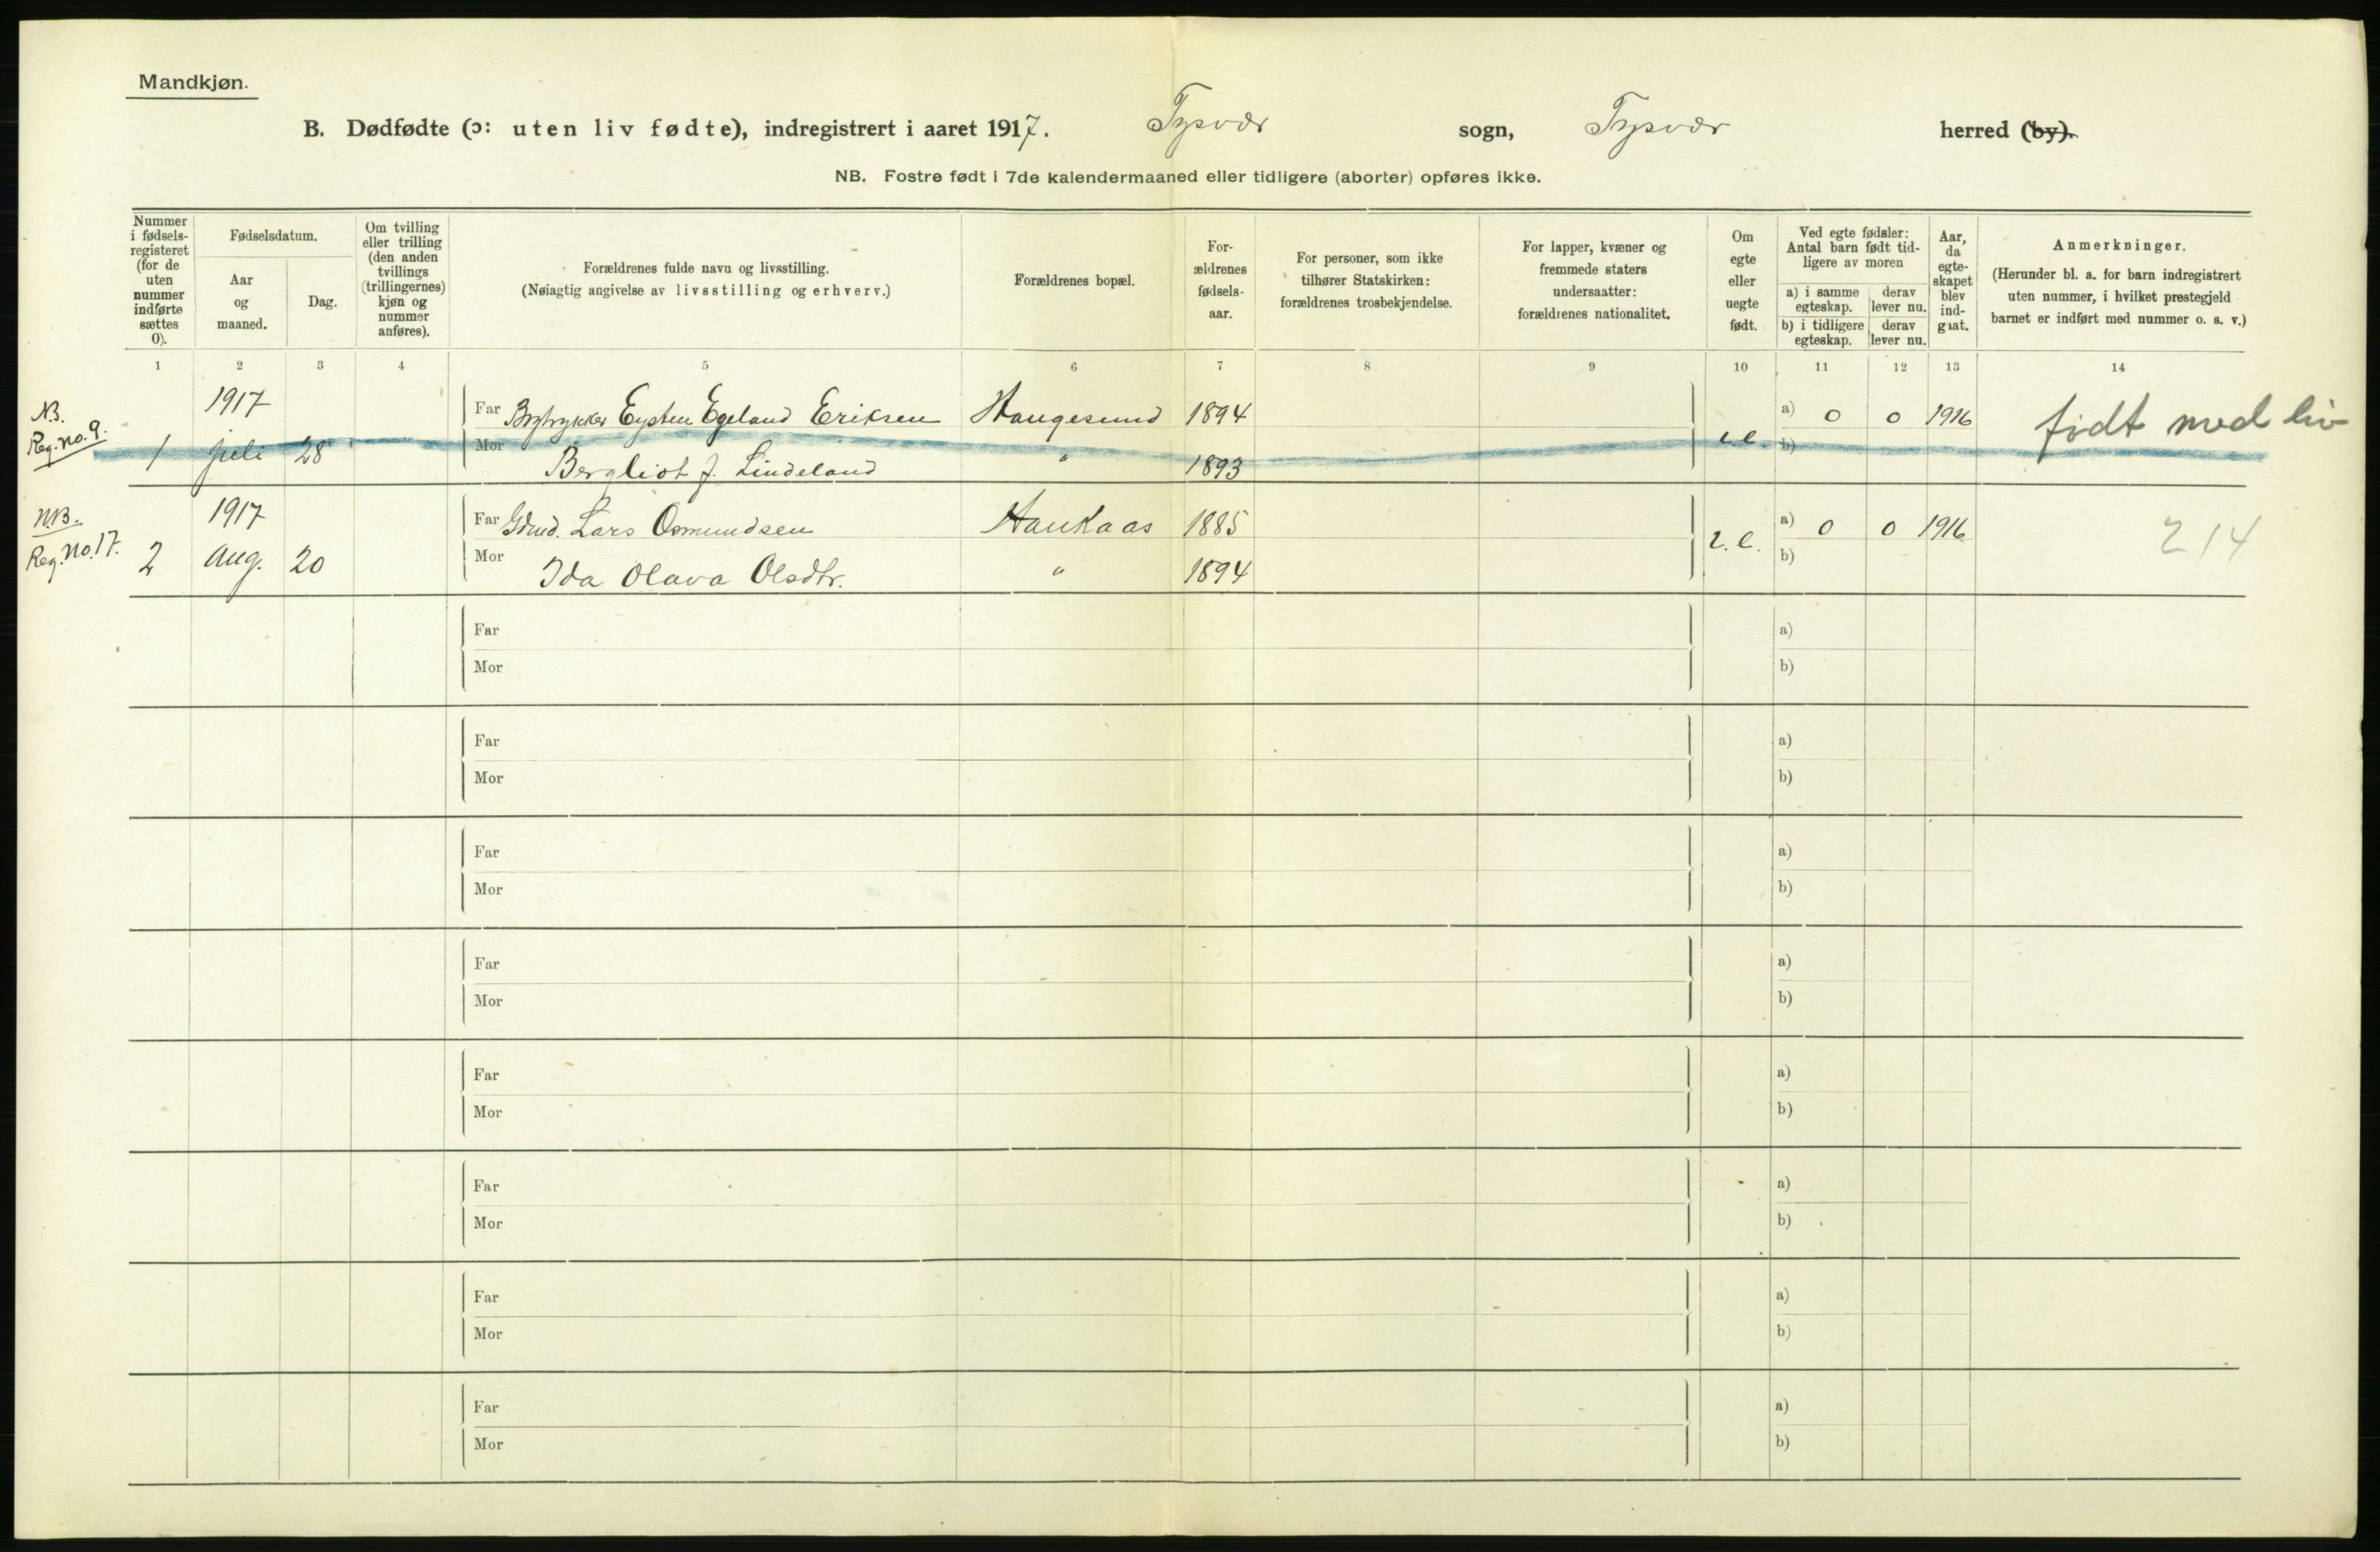 Mandkjøn.
B. Dødfødte (ɔ: uten liv fødte), indregistrert i aaret 1917. Tysvær sogn, Tysvær herred (by).
NB. Fostre født i 7de kalendermaaned eller tidligere (aborter) opføres ikke.
Nummer
i fødsels-
registeret
(for de
uten
nummer
indførte
sættes
0).
Fødselsdatum.
Aar
og
maaned.
Dag.
Om tvilling
eller trilling
(den anden
tvillings
(trillingernes)
kjøn og
nummer
anføres).
Forældrenes fulde navn og livsstilling.
(Nøiagtig angivelse av livsstilling og erhverv.)
Forældrenes bopæl.
For-
ældrenes
fødsels-
aar.
For personer, som ikke
tilhører Statskirken:
forældrenes trosbekjendelse.
For lapper, kvæner og
fremmede staters
undersaatter:
forældrenes nationalitet.
Om
egte
eller
uegte
født.
Ved egte fødsler:
Antal barn født tid-
ligere av moren
a) i samme
egteskap.
derav
lever nu.
b) i tidligere
egteskap.
derav
lever nu.
Aar,
da
egte-
skapet
blev
ind-
gaat.
Anmerkninger.
(Herunder bl. a. for barn indregistrert
uten nummer, i hvilket prestegjeld
barnet er indført med nummer o. s. v.)
1 2 3 4 5 6 7 8 9 10 11 12 13 14
N.B.
Reg. no. 9.
1917
Far Eysten Egeland Eriksen Haugesund 1894 a) 0 0 1916 født med liv
1 juli 28 Mor Bergliot f. Lindeland " 1893 e. b)
N.B.
Reg. No. 17.
1917
Far Gdmd. Lars Osmundsen Haukaas 1885 a) 0 0 1916 214
2 Aug. 20 Mor Ida Olava Olsdtr. " 1894 e. b)
Far a)
Mor b)
Far a)
Mor b)
Far a)
Mor b)
Far a)
Mor b)
Far a)
Mor b)
Far a)
Mor b)
Far a)
Mor b)
Far a)
Mor b)